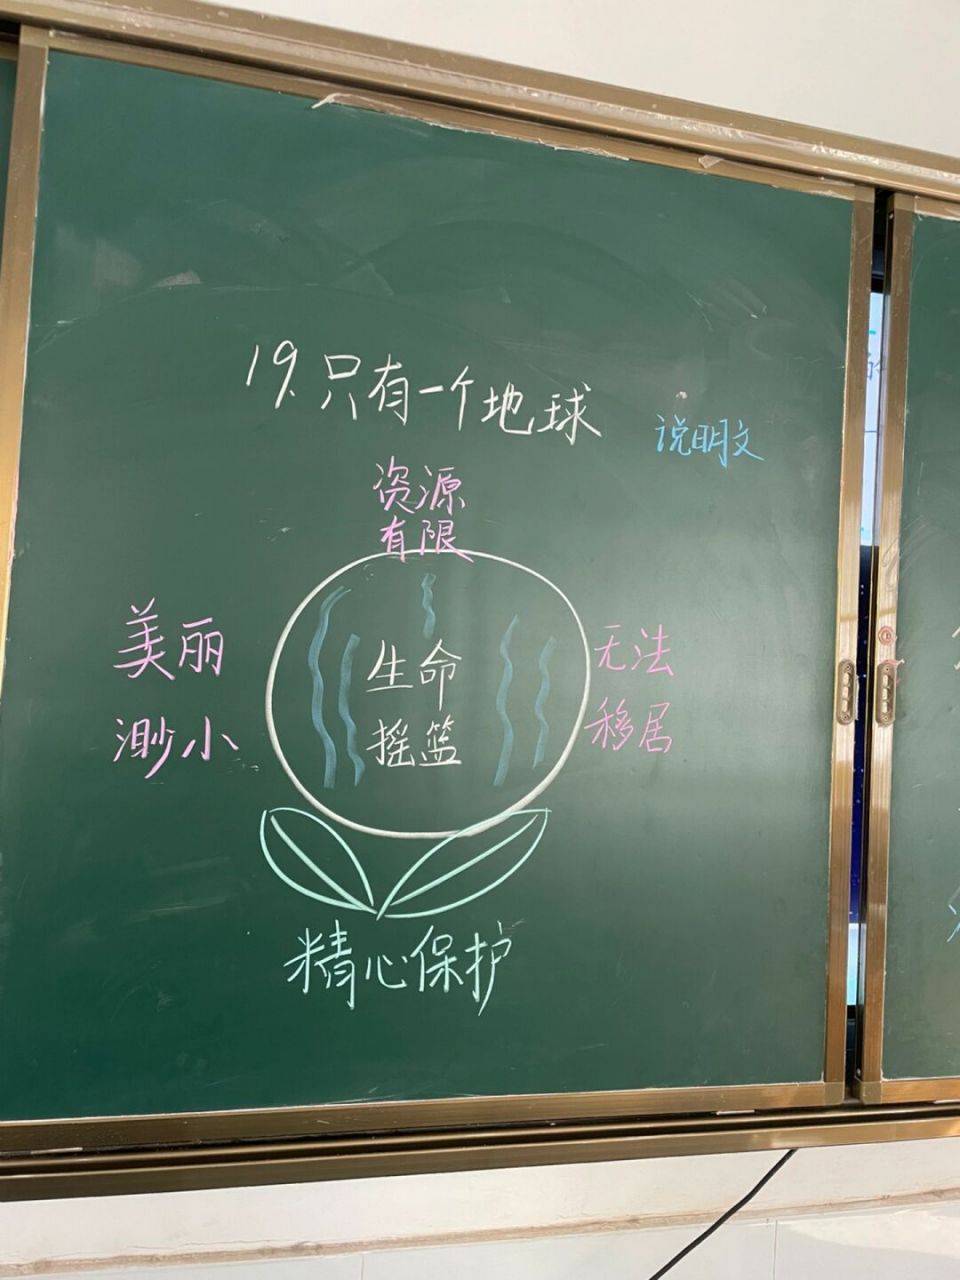 19. 只有一个地球
说明文
资源
有限
美丽
渺小
生命
摇篮
无法
移居
精心保护